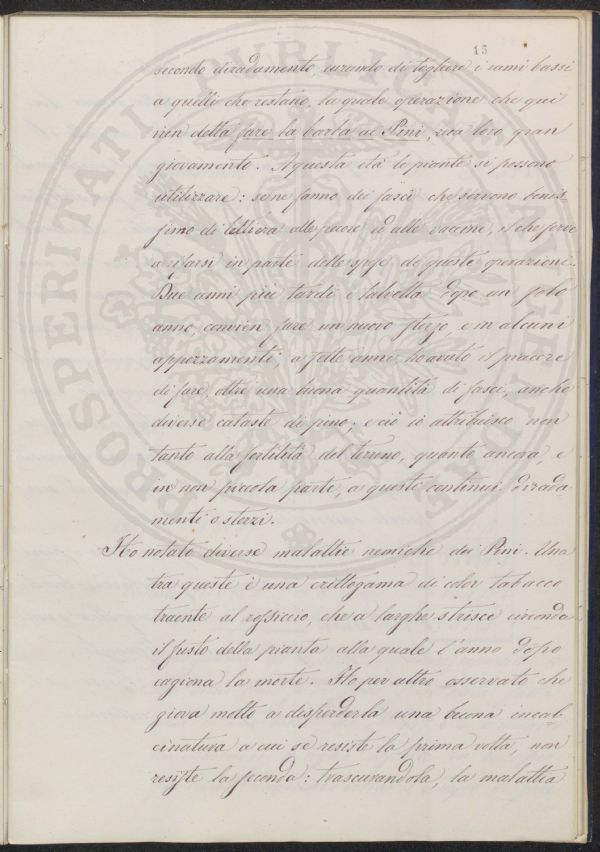 15
secondo diradamento, curando di togliere i rami bassi
a quelli che restano, la quale operazione che qui
vien detta fare la barba ai Pini, reca loro gran
giovamento. A questa età le piante si possono
utilizzare: se ne fanno dei fasci che servono benis-
simo di lettiera alle pecore, ed alle vaccine, il che serve
a rifarsi in parte delle spese di queste operazioni.
Due anni più tardi e talvolta dopo un solo
anno convien fare un nuovo sterzo, e in alcuni
appezzamenti a sette anni ho avuto il piacere
di fare, oltre una buona quantità di fasci, anche
diverse cataste di pino; e ciò io attribuisco non
tanto alla fertilità del terreno, quanto ancora, e
in non piccola parte, a questi continui dirada
menti o sterzi.
Ho notato diverse malattie nemiche dei Pini. Una
tra queste è una crittogama di color tabacco
traente al rossiccio, che a larghe strisce circonda
il fusto della pianta alla quale l'anno dopo
cagiona la morte. Ho per altro osservato che
giova molto a disperderla una buona incal-
cinatura a cui se resiste la prima volta, non
resiste la seconda: trascurandola, la malattia
PROSPERITATI PUBLICAE AUGENDAE